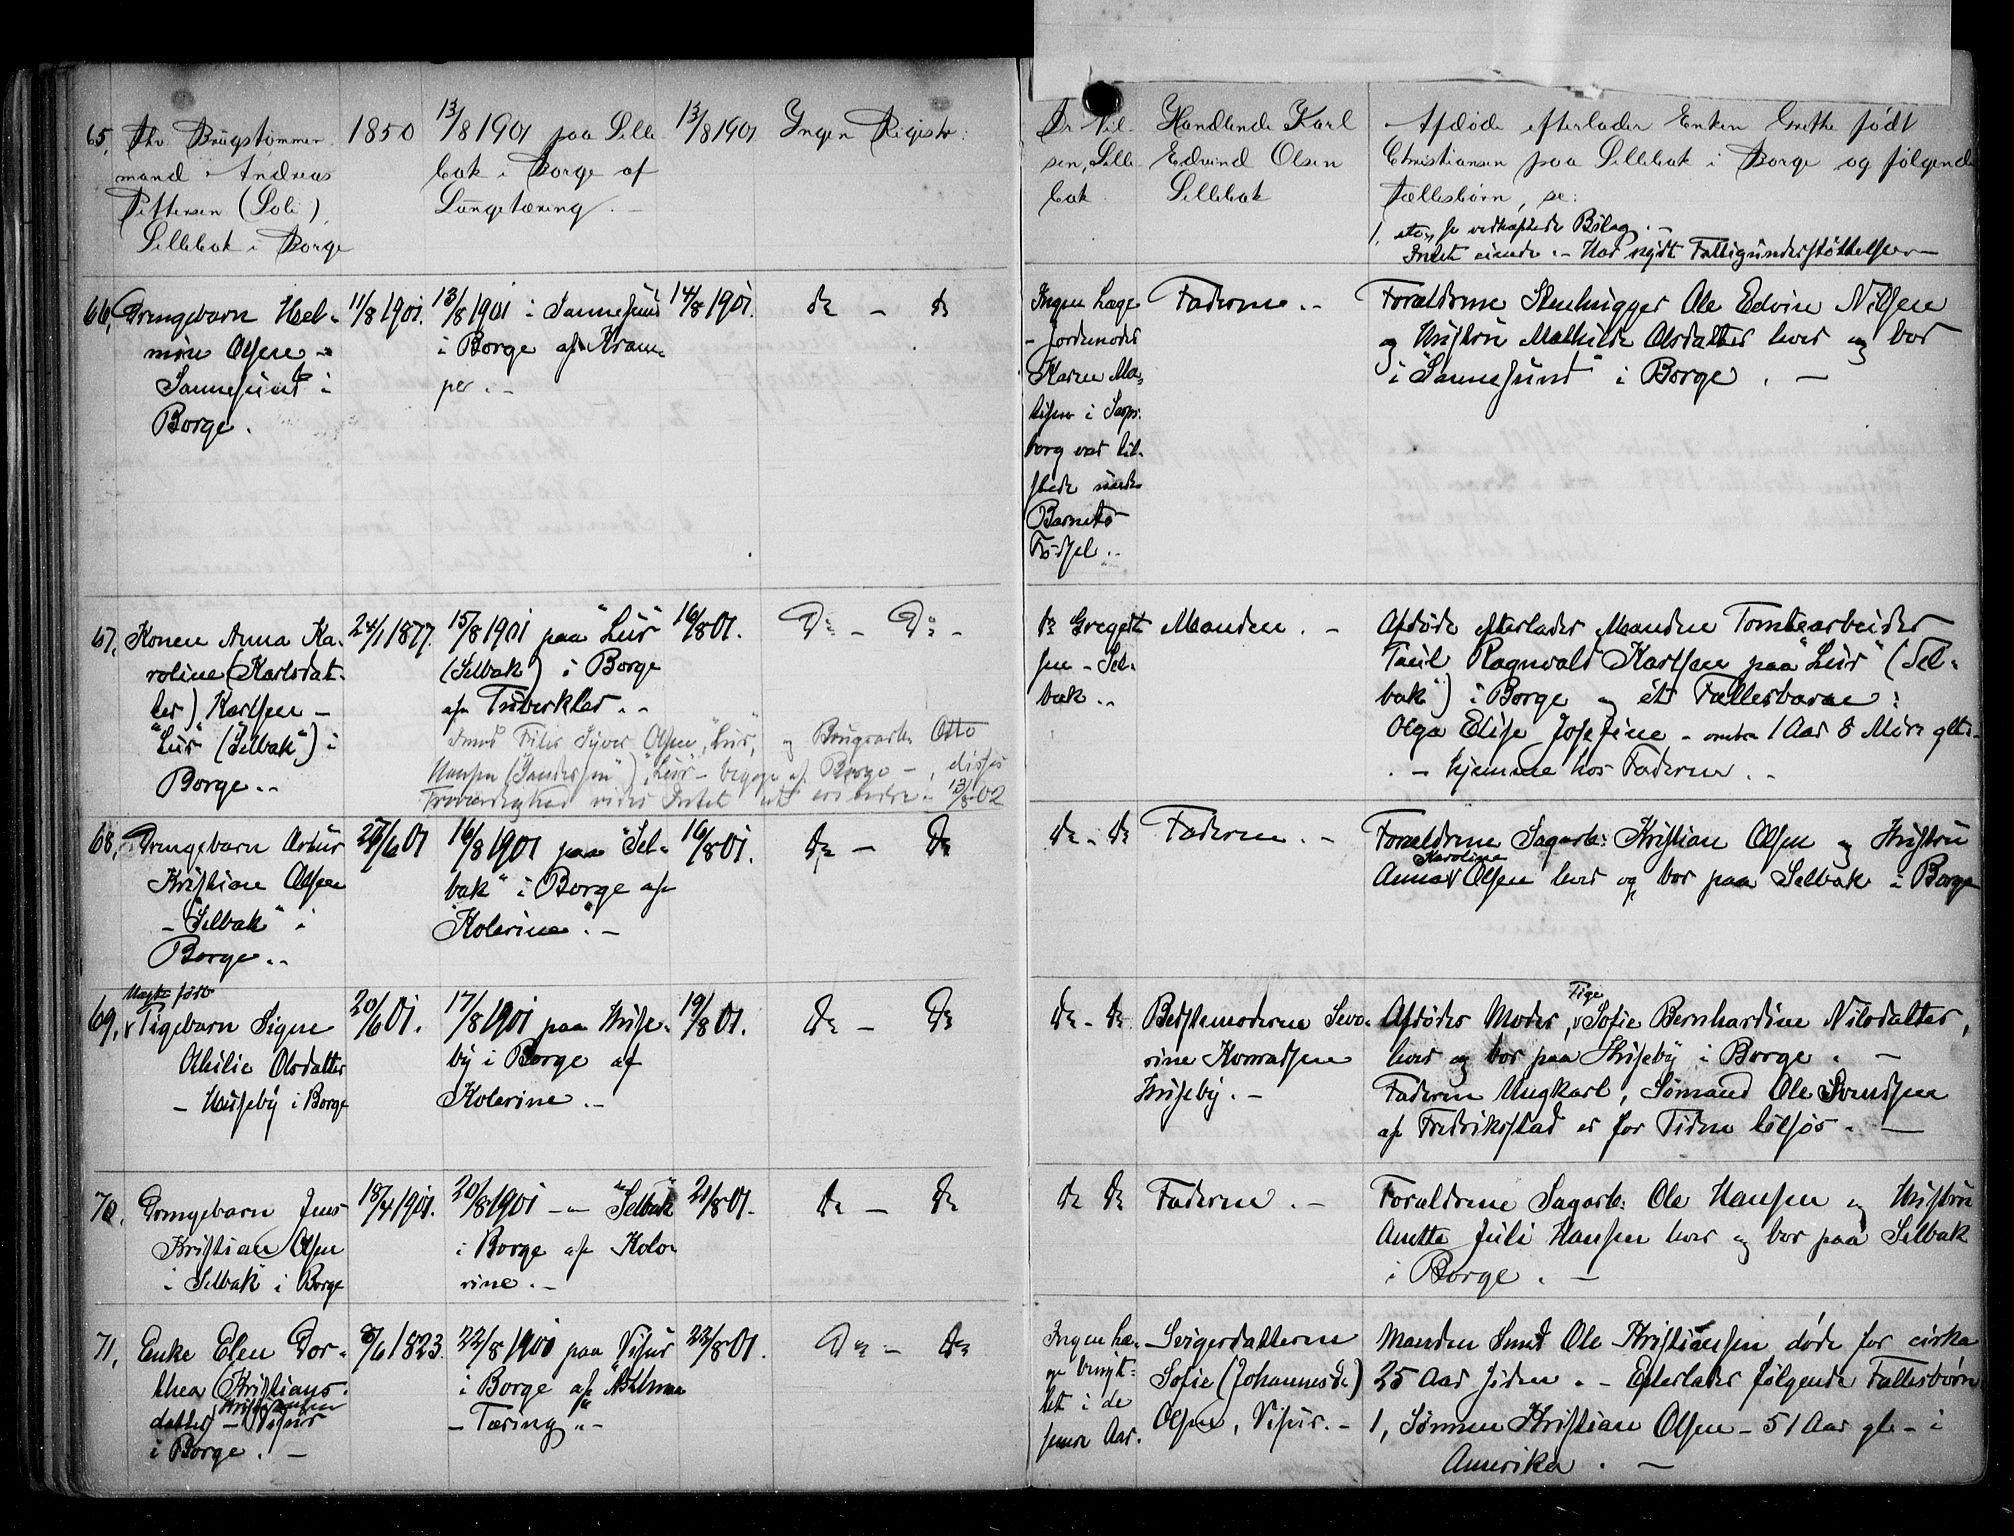 65,
Fhv. Brugstømmer
mand Andreas
Pettersen (Lole),
Lillebak i Borge
1850
13/8 1901 paa Lille
bak i Borge af
Lungetæring. –
13/8 1901
Ingen Registr:
Dr Nil
sen, Lille
bak
Handlende Karl
Edvind Olsen
Lillebak
Afdøde efterlader Enken Grethe født
Christiansen paa Lillebak i Borge og følgende
Fællesbørn, se:
1, etc, se vedhæftede Bilag. –
Intet eiende. – Har nydt Fattigunderstøttelse. –
66,
Drengebarn Hel-
mine Olsen –
Sannesund i
Borge.
11/8 1901.
13/8 1901 i Sannesund
i Borge af Kram-
per. –
14/8 1901.
do – do
Ingen Læge
– Jordemoder
Karen Ma-
tisen i Sarps-
borg var til-
stede under
Barnets
Fødsel. –
Faderen. –
Forældrene Stenhugger Ole Edvin Nilsen
og Hustru Mathilde Olsdatter lever og bor
i "Sannesund" i Borge. –
67,
Konen Anna Ka-
roline (Karlsdat-
ter) Karlsen –
"Lur" (Selbak") i
Borge. –
24/1 1877.
15/8 1901 paa "Lur"
(Selbak) i Borge
af Tuberkler. –
16/8 01.
Do – Do –
do Gregert
sen – Sel-
bak. –
Manden. –
Afdøde efterlader Manden Tomtearbeider
Taul Ragnvald Karlsen paa "Lur" (Sel-
bak") i Borge og ét Fællesbarn:
Olga Elise Josefine – omtr 1 Aar 8 Mdr gl
– hjemme hos Faderen. –
Olsen, "Lur", og Brugsarb. Otto
Hansen "Lur" – begge af Borge –, disses
Troværdighed vides Intet at 13/8 02
68,
Drengebarn Artur
Kristian Olsen
– "Selbak" i
Borge. –
27/6 01
16/8 1901 paa "Sel-
bak" i Borge af
"Kolerine". –
16/8 01.
do – do
do – do
Faderen. –
Forældrene Sagarb: Kristian Olsen og Hustru
Karoline
Anna Olsen lever og bor paa Selbak i Borge
69,
Uægte født
Pigebarn Signe
Othilie Olsdatter
– Huseby i Borge
20/6 01.
17/8 1901 paa Huse-
by i Borge af
Kolerine. –
19/8 01.
do – do
do – do
Bedstemoderen Seve-
rine Konradsen
Huseby. –
Pige
Afdødes Moder, Sofie Bernhardine Nilsdatter,
lever og bor paa Huseby i Borge. –
Faderen Ungkarl, Sømand Ole Svendsen
af Fredrikstad er for Tiden tilsjøs. –
70,
Drengebarn Jens
Kristian Olsen
i "Selbak" i Borge
18/4 1901.
20/8 1901 – "Selbak"
i Borge af Kole-
rine. –
21/8 01.
do – do
do do
Faderen. –
Forældrene Sagarb: Ole Hansen og Hustru
Anette Juli Hansen lever og bor paa Selbak
i Borge. –
71,
Enke Elen Dor-
thea (Kristians-
Kristiansen
datter) – Visur
i Borge. –
8/6 1823.
22/8 1901 paa Visur
i Borge af "Asthma
– Tæring". –
22/8 01.
Do – do
Ingen Læ-
ge benyt-
tet i de
senere Aar.
Svigerdatteren
Sofie (Johannesdr)
Olsen, Visur. –
Manden Smed Ole Kristiansen døde for cirka
25 Aar siden. – Efterlader følgende Fællesbørn
1, Sønnen Kristian Olsen – 51 Aar gl. – i
Amerika. –